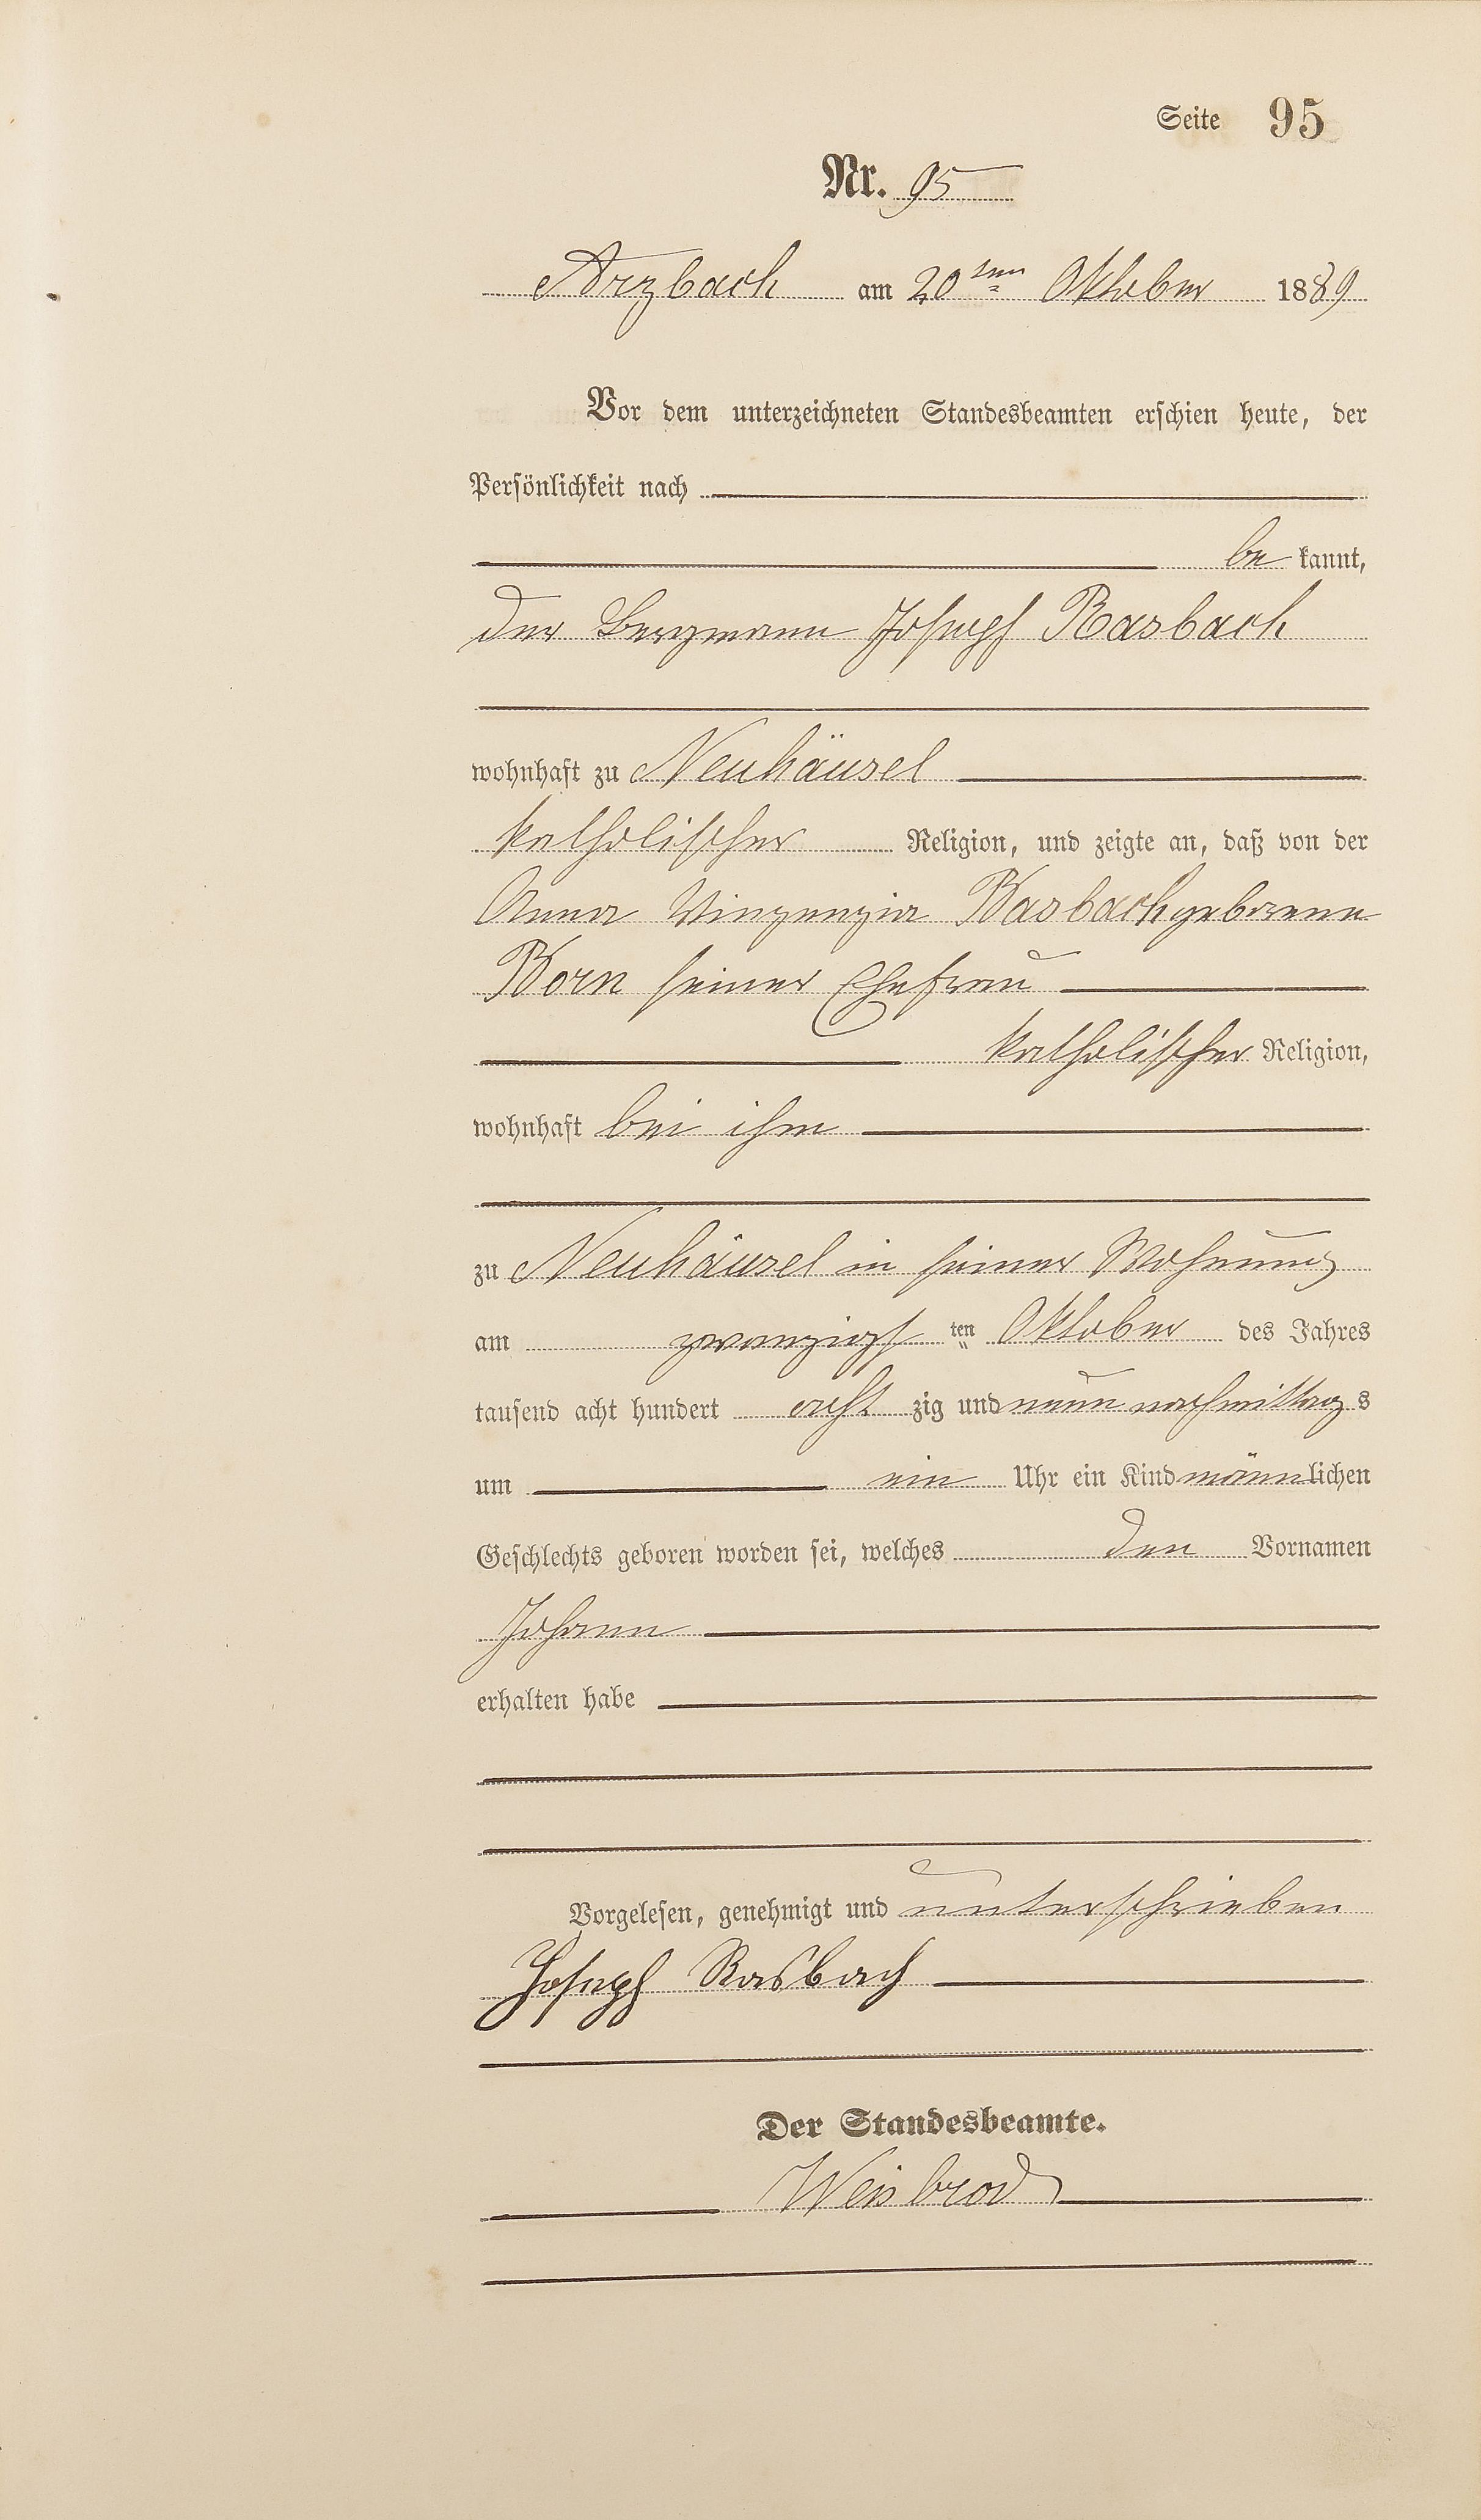 Seite 95
Nr. 95
Arzbach am 20ten Oktober 1889
Vor dem unterzeichneten Standesbeamten erschien heute, der
Persönlichkeit nach
be kannt,
der Bergmann Joseph Rasbach
wohnhaft zu Neuhäusel
katholischer Religion, und zeigte an, daß von der
Anna Vinzenzia Rasbach geborene
Born seiner Ehefrau
katholischer Religion,
wohnhaft bei ihm
zu Neuhäusel in seiner Wohnung
am zwanzigsten Oktober des Jahres
tausend acht hundert acht zig und neun nachmittags
um ein Uhr ein Kind männlichen
Geschlechts geboren worden sei, welches den Vornamen
Johann
erhalten habe
Vorgelesen, genehmigt und unterschrieben
Joseph Rasbach
Der Standesbeamte.
Weisbrod